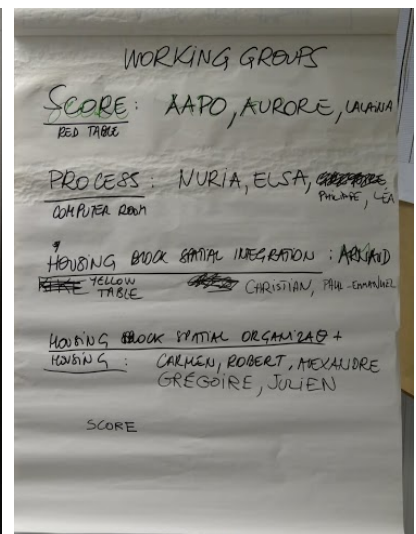 WORKING GROUPS
SCORE: AAPO, AURORE, LALAINA
RED TABLE
PROCESS: NURIA, ELSA,
PHILIPPE, LÉA
COMPUTER ROOM
HOUSING BLOCK SPATIAL INTEGRATION: ARNAUD
YELLOW CHRISTIAN, PAUL-EMMANUEL
TABLE
HOUSING BLOCK SPATIAL +
HOUSING: CARMEN, ROBERT, ALEXANDRE
GRÉGOIRE, JULIEN
SCORE